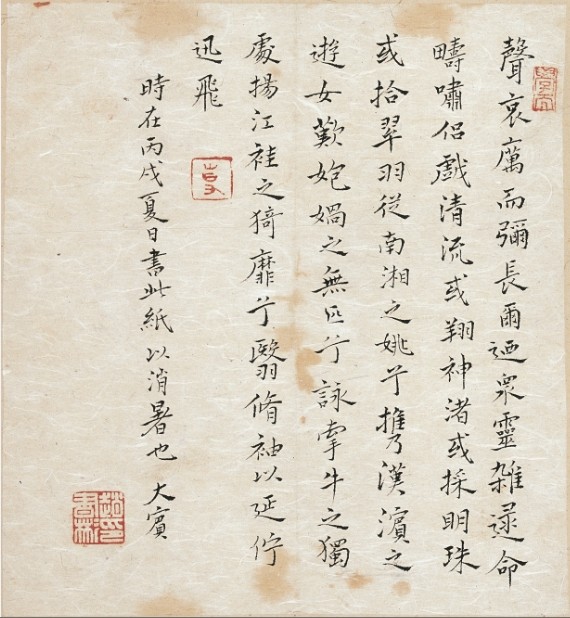 聲哀厲而彌長爾迺衆靈雜遝命
疇嘯侶戲清流或翔神渚或採明珠
或拾翠羽從南湘之姚兮擕漢濱之
遊女歎㚿媧之無匹兮詠牽牛之獨
處揚江袿之猗靡兮翳脩袖以延佇
迅飛
時在丙戌夏日書此紙以消暑也 大賓